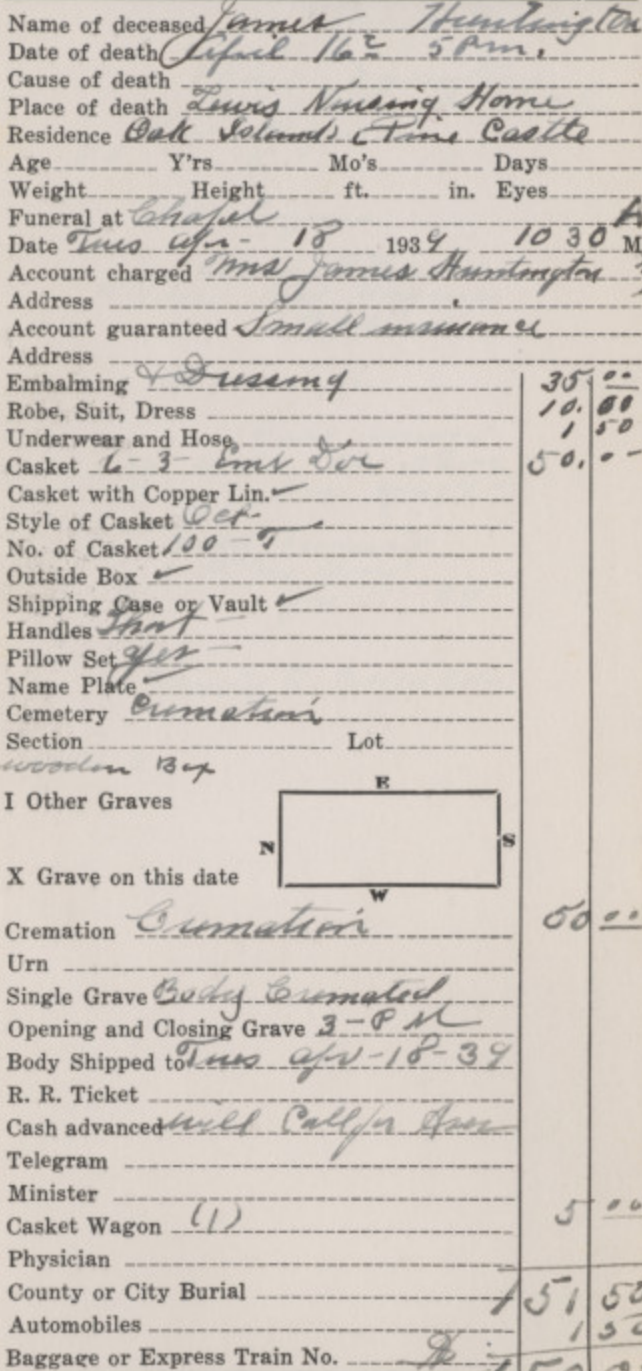 Name of deceased James Huntington
Date of death April 16 5 Pm.
Cause of death
Place of death Lewis Nursing Home
Residence Oak Island Pine Castle
Age Y'rs Mo's Days
Weight Height ft. in. Eyes
Funeral at Chapel
Date Tues Apr - 18 1939 10 30 M
Account charged Mrs James Huntington
Address
Account guaranteed Small insurance
Address
Embalming & Dressing 35 00
Robe, Suit, Dress 10. 00
Underwear and Hose 1 50
Casket 6-3- Emb Doe 50. --
Casket with Copper Lin.
Style of Casket Oct
No. of Casket 100 - T
Outside Box
Shipping Case or Vault
Handles Short
Pillow Set yes
Name Plate
Cemetery Cremation
Section Lot
wooden Box
I Other Graves
E
N
S
X Grave on this date
W
Cremation Cremation 50 00
Urn
Single Grave Body Cremated
Opening and Closing Grave 3-PM
Body Shipped to Tues Apr-18-39
R. R. Ticket
Cash advanced will Call for
Telegram
Minister
Casket Wagon (1) 5 00
Physician
County or City Burial 151 50
Automobiles 1 50
Baggage or Express Train No.